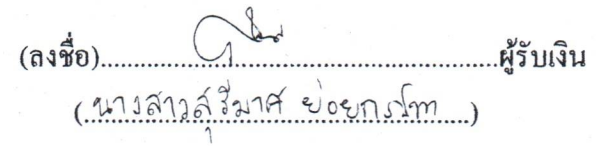 (ลงชื่อ)..........................................................ผู้รับเงิน
(นางสาวสุรีมาศ ย่อย)